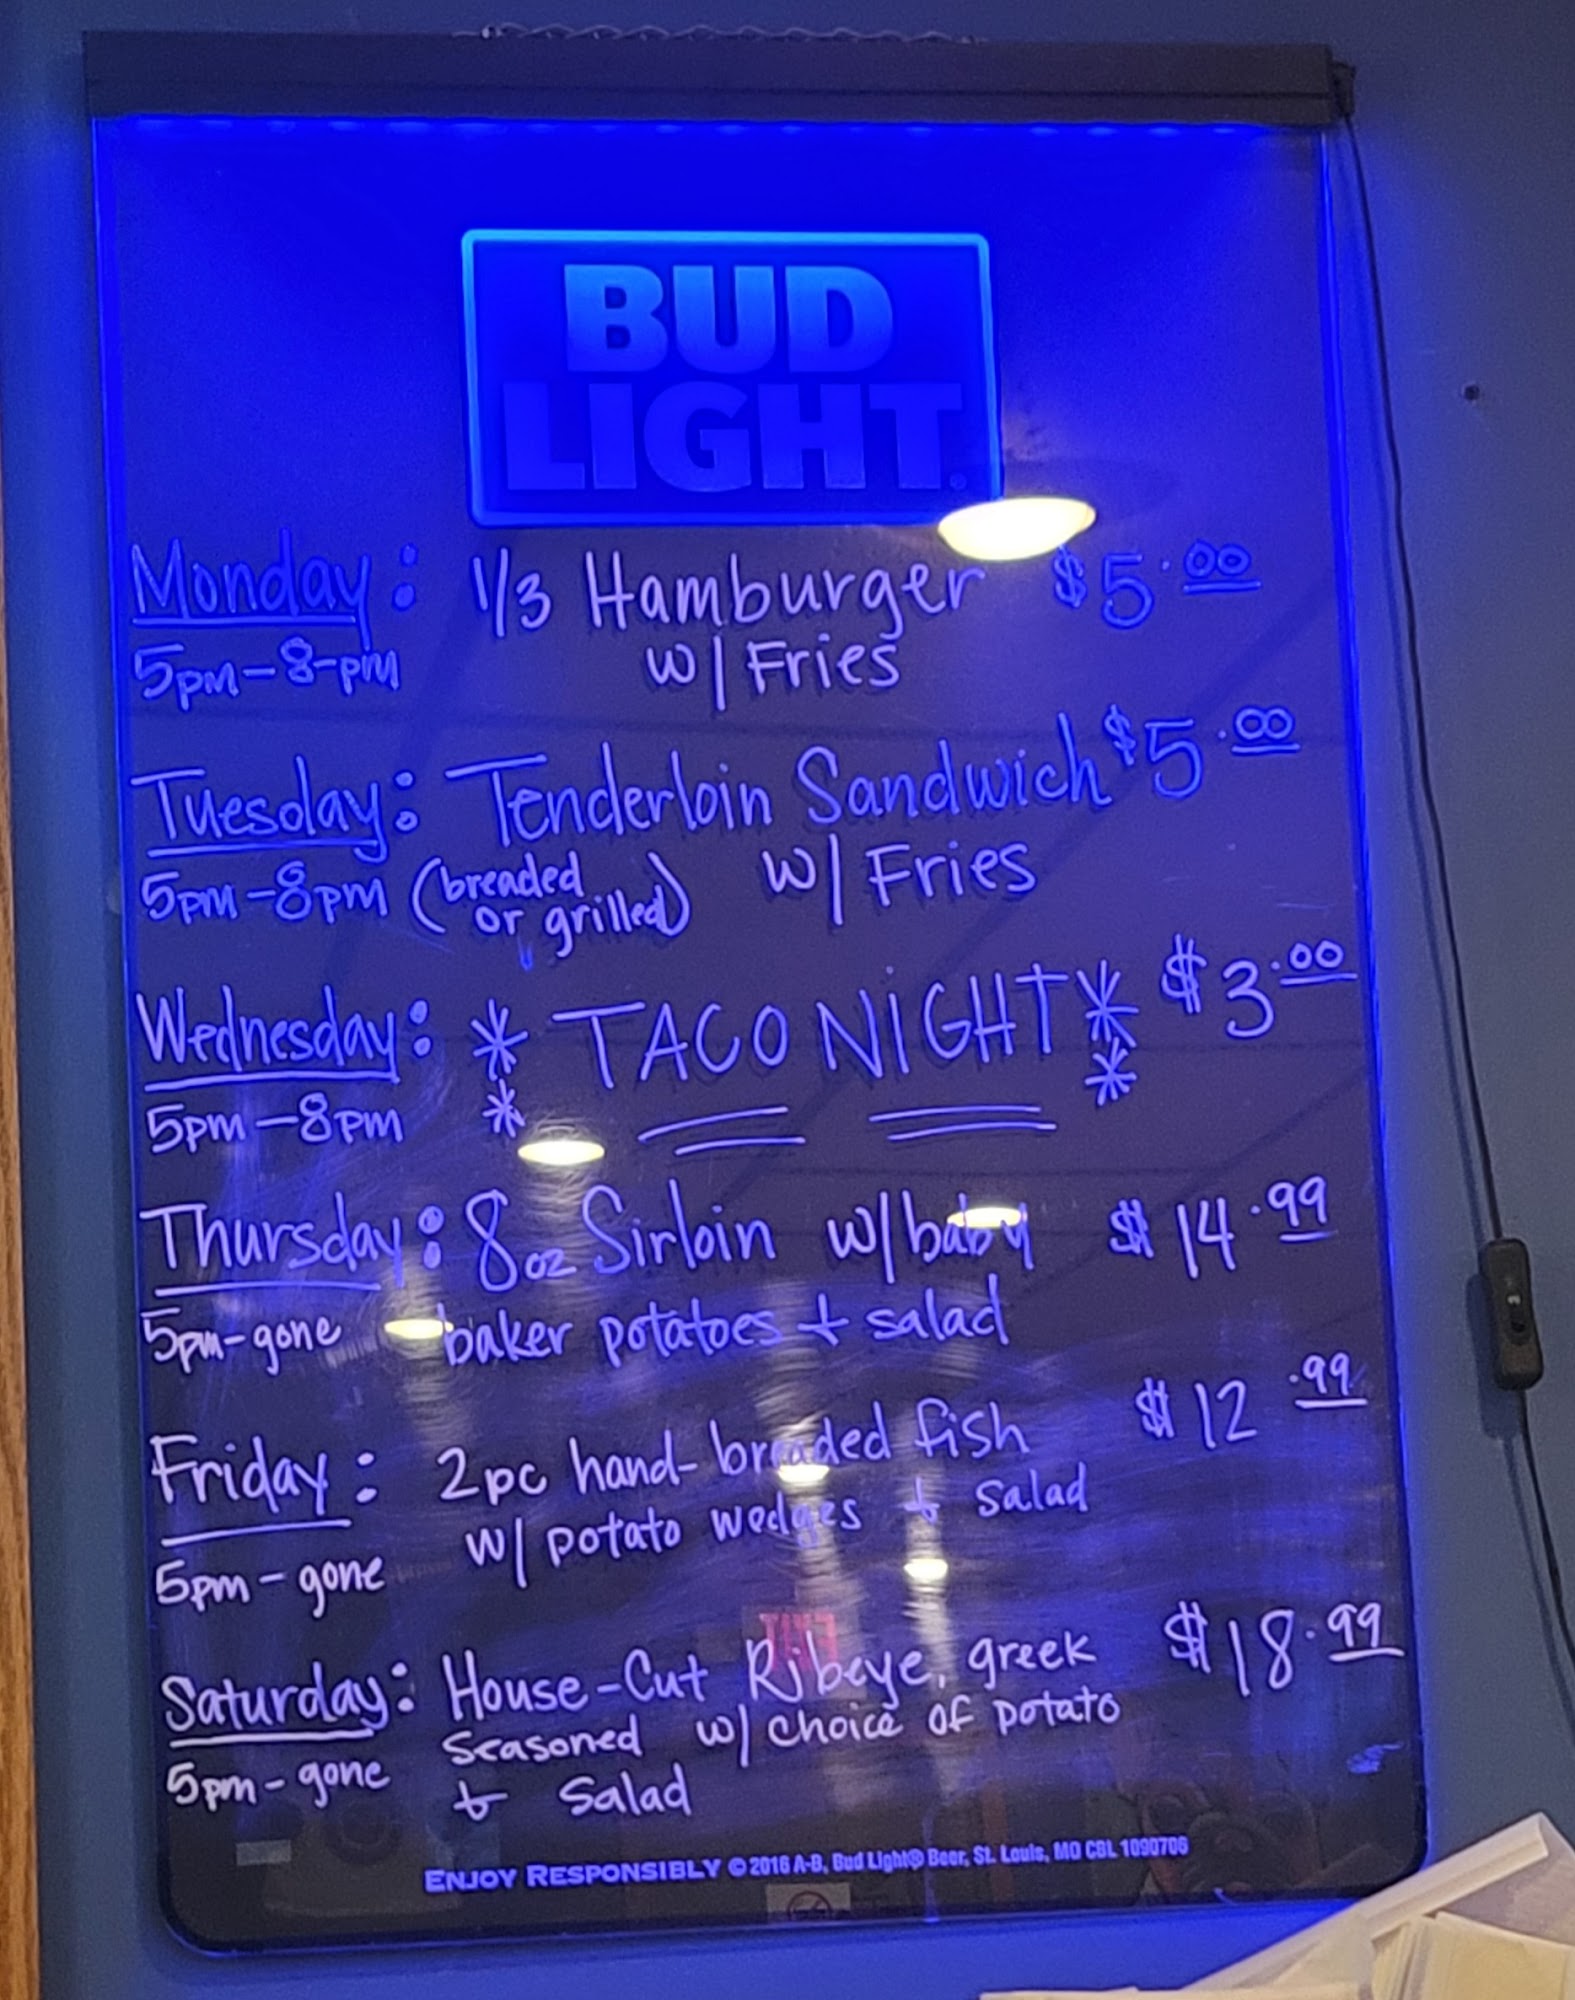 BUD
LIGHT.
Monday: 1/3 Hamburger $5.00
5pm-8-pm w/ Fries
Tuesday: Tenderloin Sandwich $5.00
5pm-8pm (breaded or grilled) w/ Fries
Wednesday: * TACO NIGHT * $3.00
5pm-8pm * *
Thursday: 8oz Sirloin w/ baby $14.99
5pm-gone baker potatoes + salad
Friday: 2pc hand-breaded fish $12.99
5pm-gone w/ potato wedges + salad
Saturday: House-Cut Ribeye, greek $18.99
5pm-gone seasoned w/ choice of potato
+ salad
EXIT
ENJOY RESPONSIBLY © 2016 A-B, Bud Light® Beer, St. Louis, MO CBL 1090706